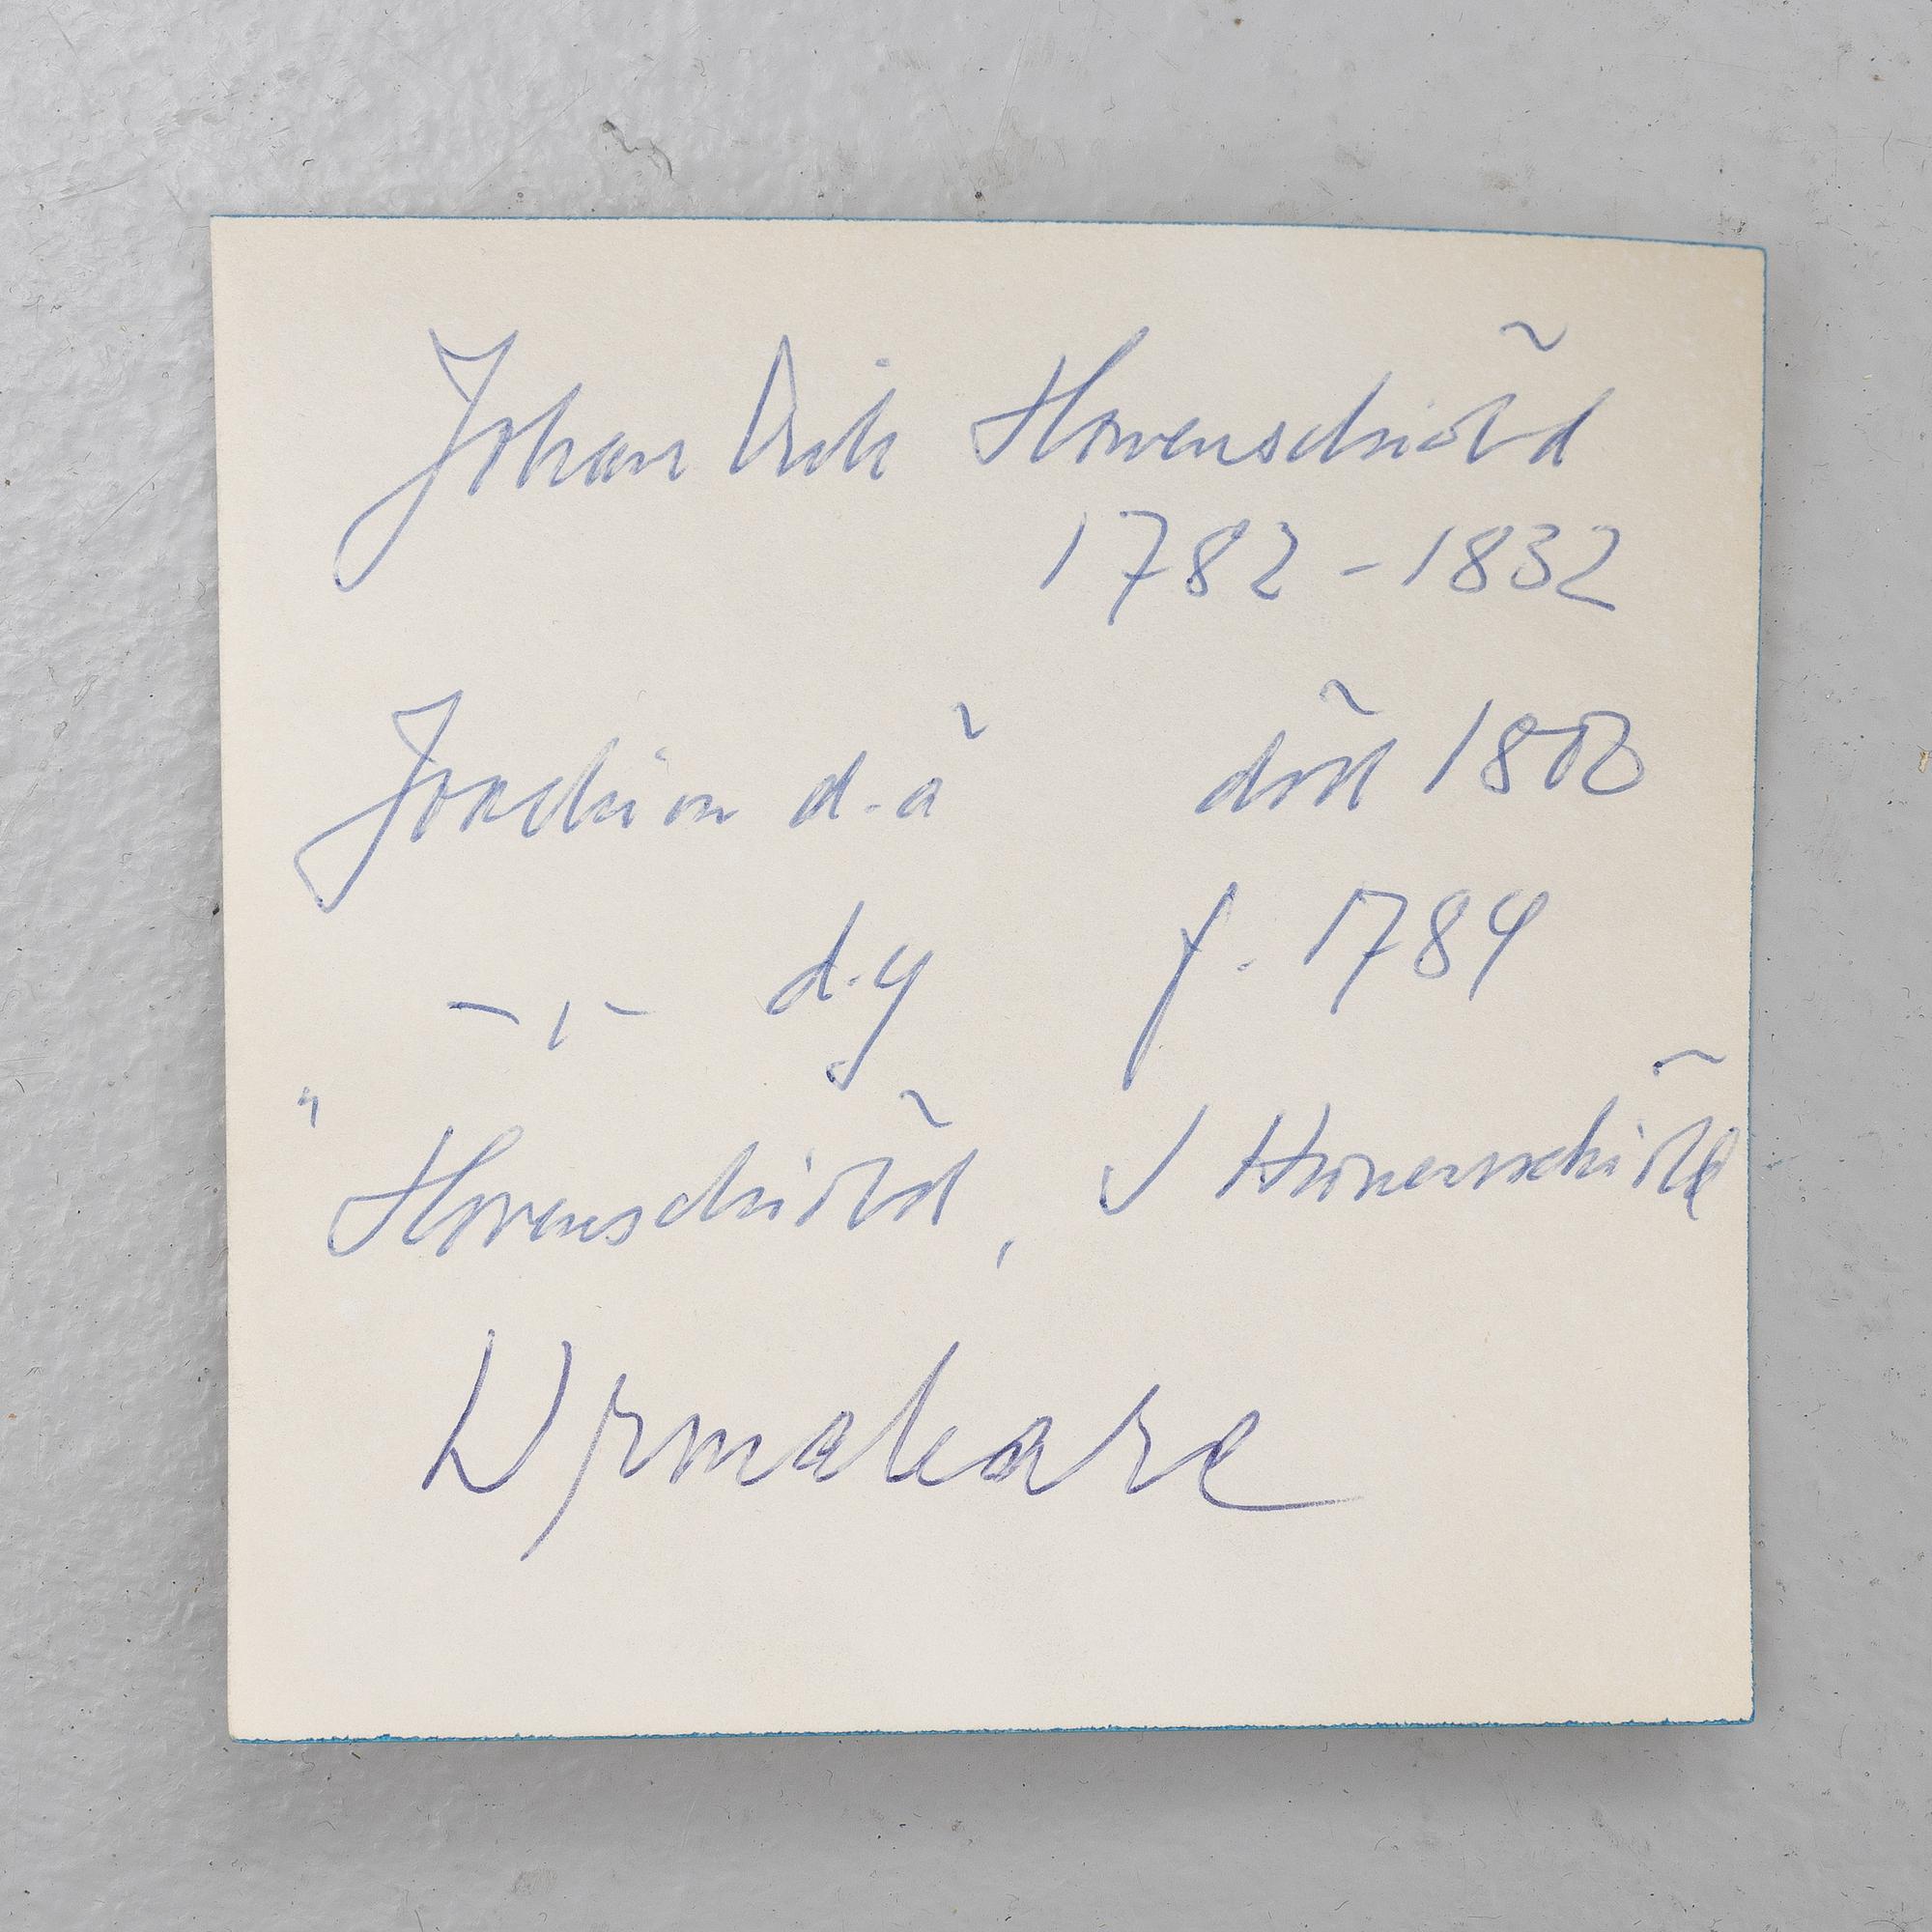 Johan Erik Hovenschiöld
1782 - 1832
Joachim d.ä död 1800
- " - d.y f. 1784
" Hovenschiöld, Hovenschiöld
Urmakare